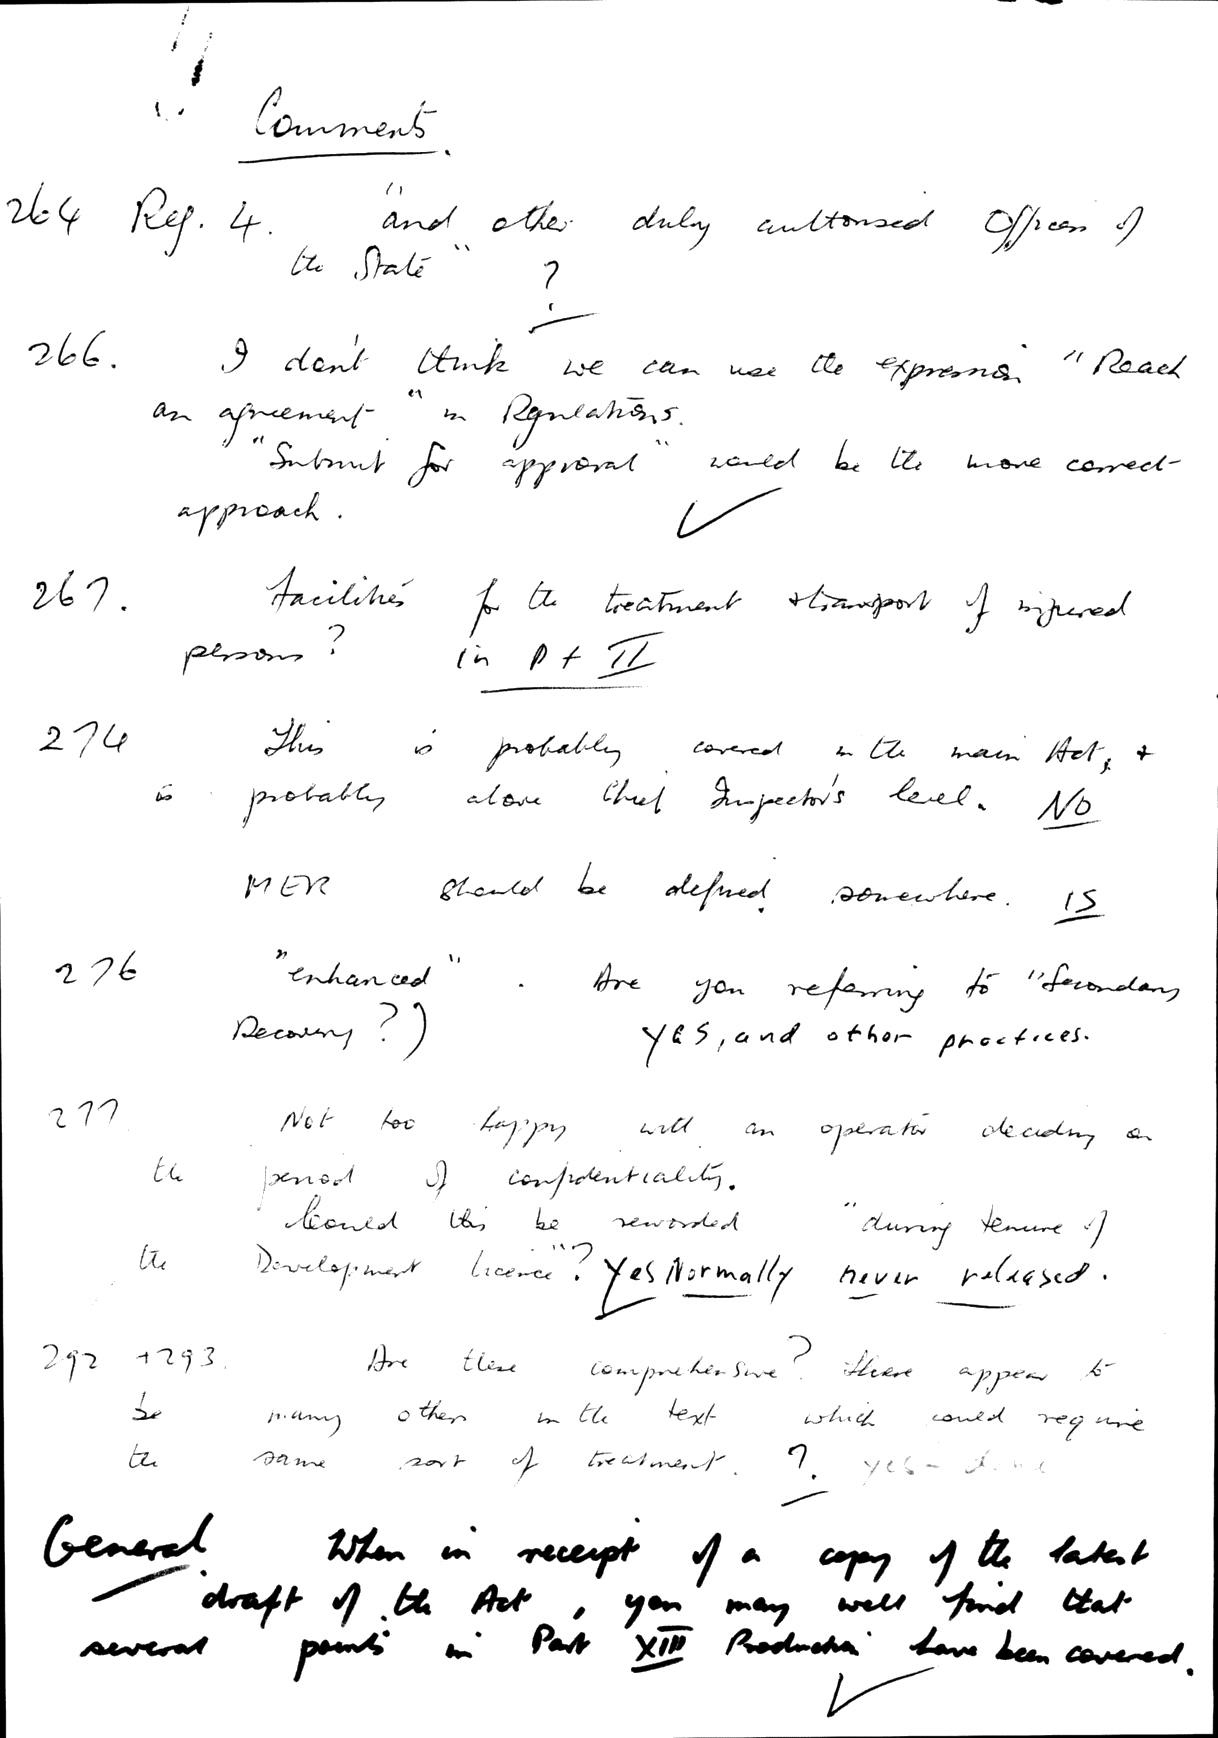 Comments.
264 Reg. 4. "and other duly authorised Officers of
the State" ?
266. I don't think we can use the expression "Reach
an agreement" in Regulations.
"Submit for approval" would be the more correct
approach. ✓
267. Facilities for the treatment + transport of injured
persons? in Pt II
274 This is probably covered in the main Act, +
is probably above Chief Inspector's level. NO
MER should be defined somewhere. IS
276 "enhanced". Are you referring to "Secondary
Recovery?) YES, and other practices.
277 Not too happy with an operator deciding on
the period of confidentiality.
Could this be reworded "during tenure of
the Development licence"? Yes Normally never released.
292 + 293. Are these comprehensive? There appear to
be many others in the text which could require
the same sort of treatment. ? yes - done
General When in receipt of a copy of the latest
draft of the Act, you may well find that
several points in Part XIII Production have been covered.
✓